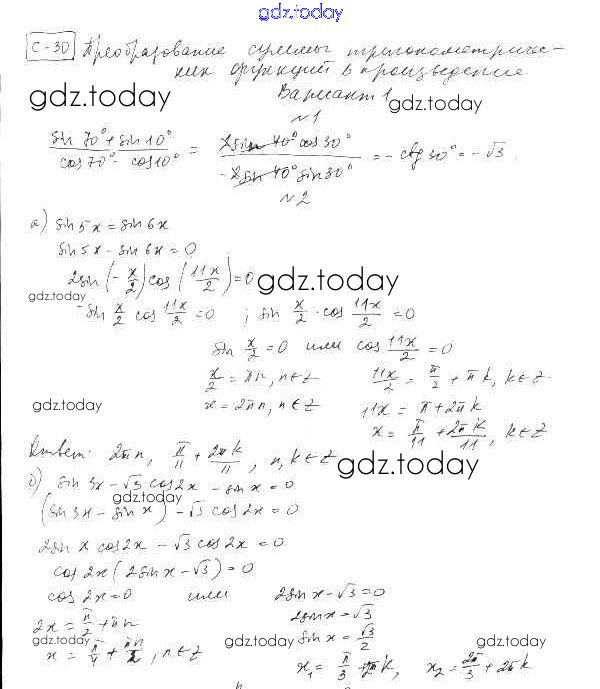 gdz.today
С-30 Преобразование суммы тригонометричес-
ких функций в произведение
gdz.today
Вариант 1
gdz.today
№1
(sin 70° + sin 10°)/(cos 70° - cos 10°) = (2 sin 40° cos 30°)/(-2 sin 40° sin 30°) = - ctg 30° = - √3.
№2
а) sin 5x = sin 6x
sin 5x - sin 6x = 0
2 sin (- x/2) cos (11x/2) = 0
gdz.today
gdz.today
- sin x/2 cos 11x/2 = 0 ; sin x/2 · cos 11x/2 = 0
sin x/2 = 0 или cos 11x/2 = 0
x/2 = πn, n∈Z 11x/2 = π/2 + πk, k∈Z
gdz.today
x = 2πn, n∈Z 11x = π + 2πk
x = π/11 + 2πk/11, k∈Z
Ответ: 2πn, π/11 + 2πk/11, n, k∈Z
gdz.today
б) sin 3x - √3 cos 2x - sin x = 0
gdz.today
(sin 3x - sin x) - √3 cos 2x = 0
2 sin x cos 2x - √3 cos 2x = 0
cos 2x (2 sin x - √3) = 0
cos 2x = 0 или 2 sin x - √3 = 0
2x = π/2 + πn 2 sin x = √3
gdz.today
sin x = √3/2
gdz.today
gdz.today
x = π/4 + πn/2, n∈Z x₁ = π/3 + 2πk, x₂ = 2π/3 + 2πk